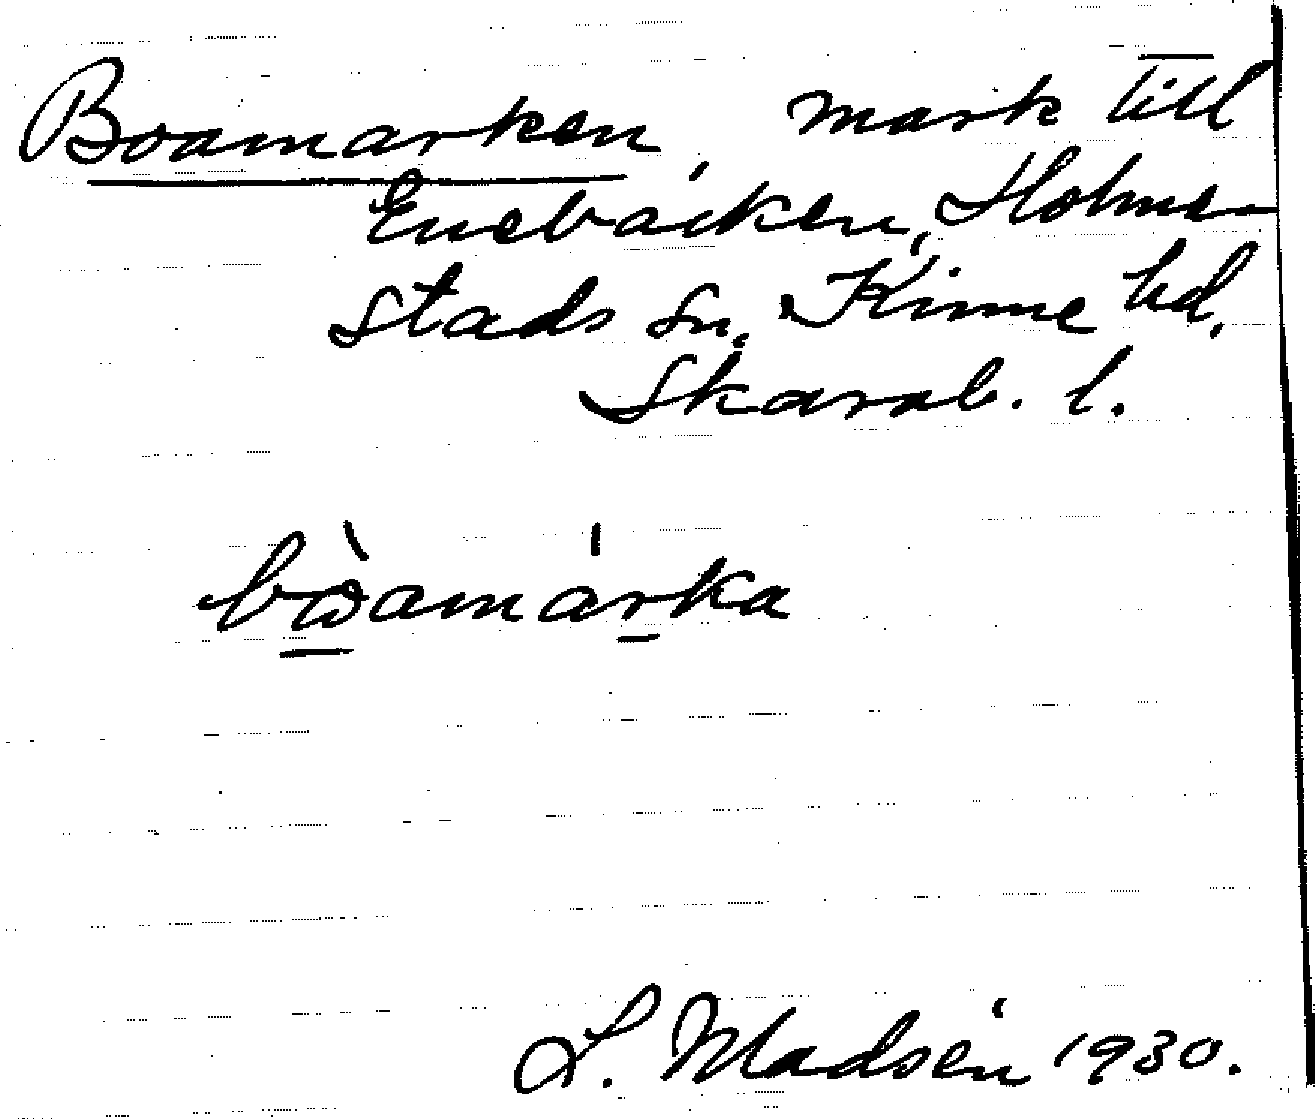 Boamarken, mark till
Enebacken, Holme-
stads sn, Kinne hd,
Skarab. l.
bòamárka
L. Madsén 1930.